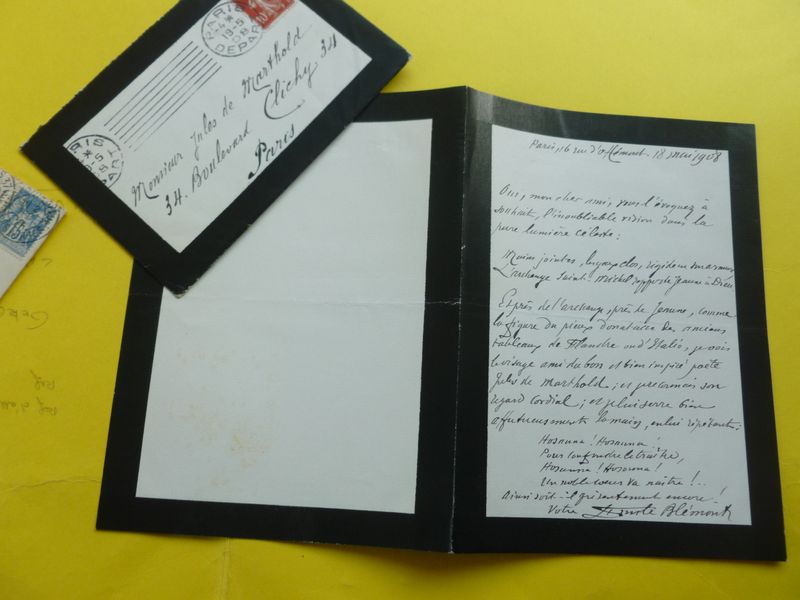 PARIS
19-5
08
DEPART
Monsieur Jules de Marthold
34. Boulevard Clichy 34
Paris
Paris, 16 rue d'Offémont - 18 mai 1908
Oui, mon cher ami, vous l'évoquez à
souhait, l'inoubliable vision dans la
pure lumière céleste :
Mains jointes, les yeux clos, rigide en son armure
L'archange Saint-Michel rapporte Jeanne à Dieu
Et près de l'archange, près de Jeanne, comme
la figure du pieux donataire des anciens
tableaux de Flandre ou d'Italie, je vois
le visage ami du bon et bien inspiré poète
Jules de Marthold ; et je reconnais son
regard cordial ; et je lui serre bien
affectueusement la main, en lui répétant :
Hosanna ! Hosanna !
Pour confondre le traître,
Hosanna ! Hosanna !
Un noble cœur va naître !..
Ainsi soit-il présentement encore !
Votre Emile Blémont